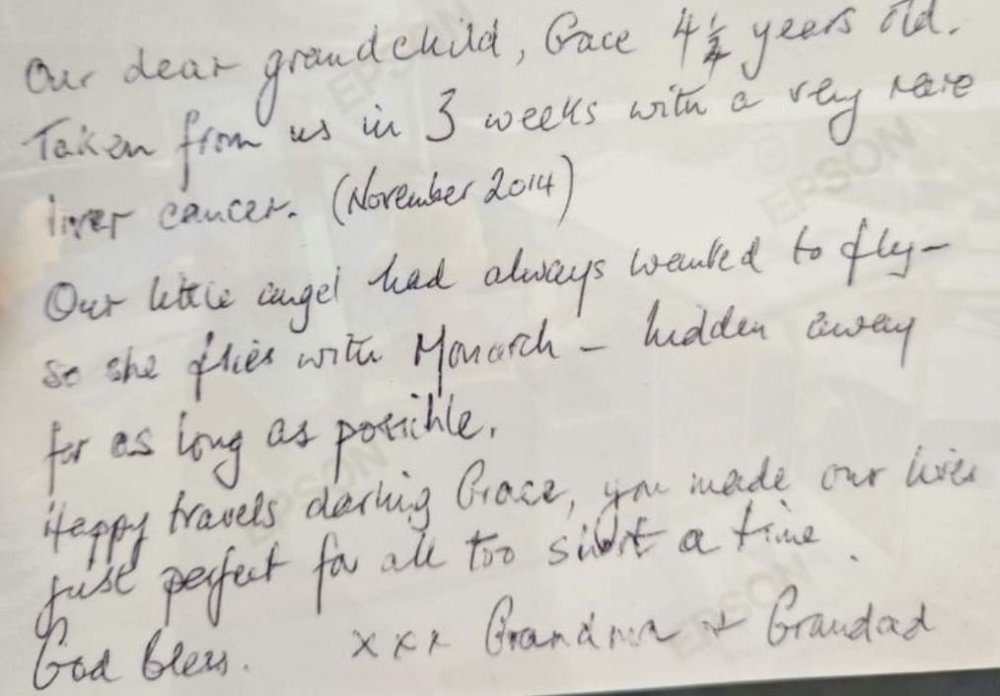 Our dear grandchild, Grace 4¼ years old.
Taken from us in 3 weeks with a very rare
liver cancer. (November 2014)
Our little angel had always wanted to fly –
so she flies with Monarch – hidden away
for as long as possible.
Happy travels darling Grace, you made our lives
just perfect for all too short a time.
God Bless. xxx Grandma + Grandad
EPSON
EPSON
EPSON
EPSON